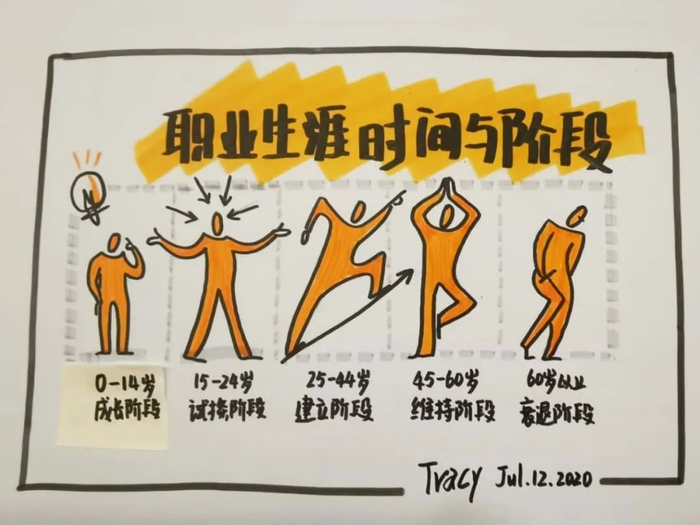 职业生涯时间与阶段
0-14岁
成长阶段
15-24岁
试探阶段
25-44岁
建立阶段
45-60岁
维持阶段
60岁以上
衰退阶段
Tracy Jul.12.2020